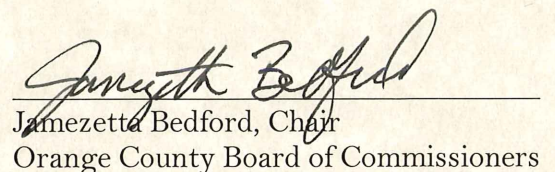 Jamezetta Bedford
Jamezetta Bedford, Chair
Orange County Board of Commissioners